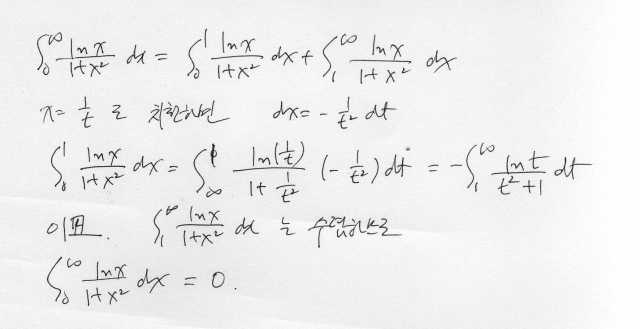 ∫₀^∞ lnx/(1+x²) dx = ∫₀¹ lnx/(1+x²) dx + ∫₁^∞ lnx/(1+x²) dx
x = 1/t 로 치환하면 dx = -1/t² dt
∫₀¹ lnx/(1+x²) dx = ∫_∞^1 ln(1/t)/(1+1/t²) (-1/t²) dt = -∫₁^∞ lnt/(t²+1) dt
이때. ∫₁^∞ lnx/(1+x²) dx 는 수렴하므로
∫₀^∞ lnx/(1+x²) dx = 0.